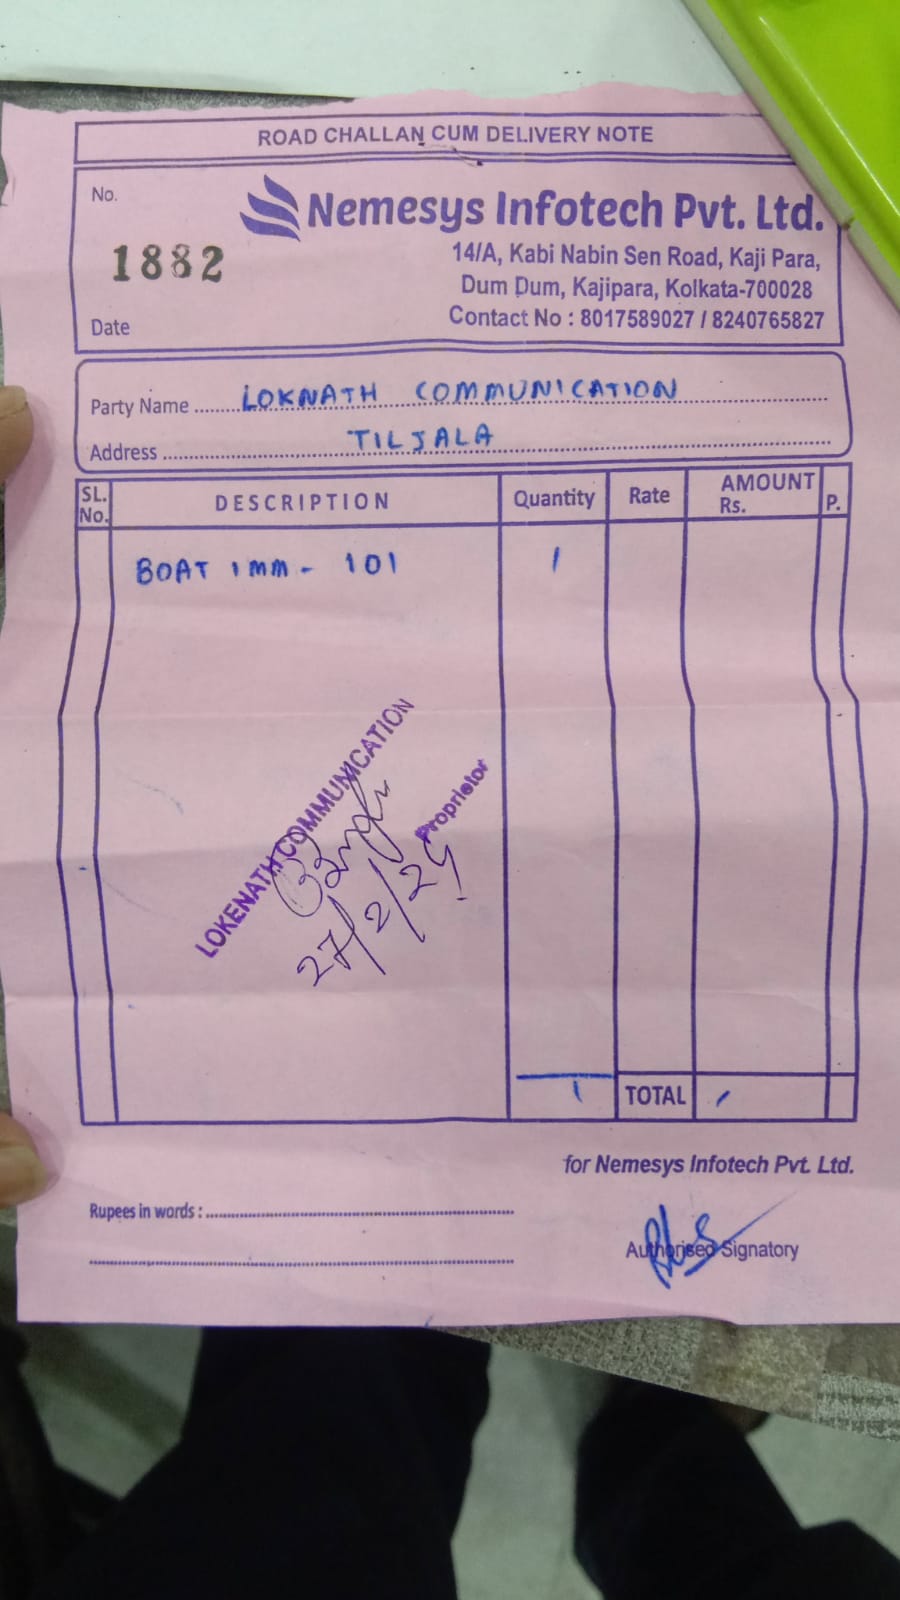 ROAD CHALLAN CUM DELIVERY NOTE
No.
1882
Date
Nemesys Infotech Pvt. Ltd.
14/A, Kabi Nabin Sen Road, Kaji Para,
Dum Dum, Kajipara, Kolkata-700028
Contact No : 8017589027 / 8240765827
Party Name LOKNATH COMMUNICATION
Address TILJALA
SL. No. DESCRIPTION Quantity Rate AMOUNT Rs. P.
BOAT 1MM - 101 1
LOKENATH COMMUNICATION
Proprietor
27/2/25
1 TOTAL
for Nemesys Infotech Pvt. Ltd.
Rupees in words :
Authorised Signatory